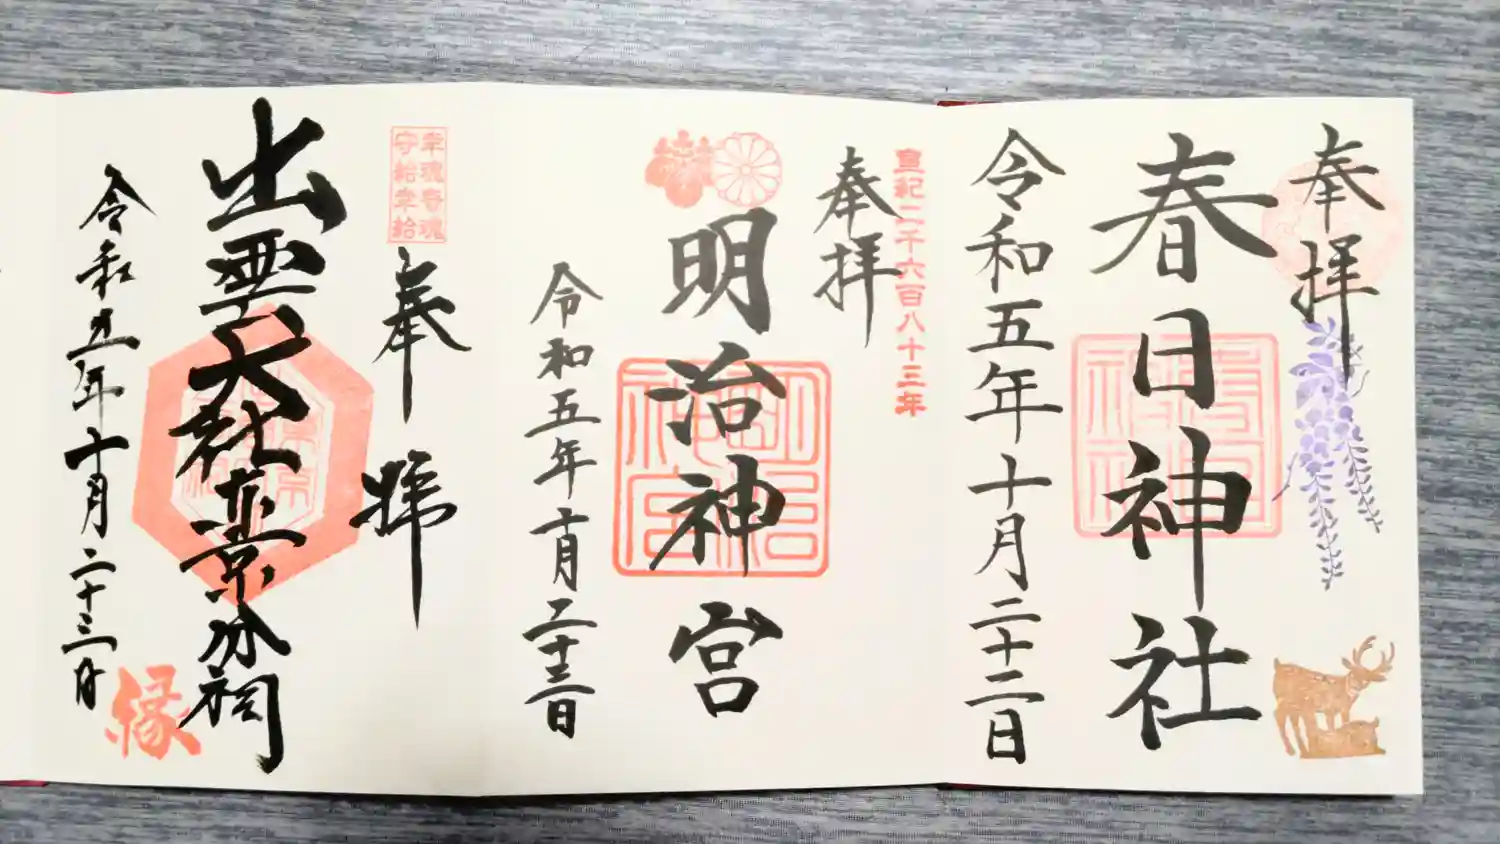 奉拝
春日神社
春日
神社
令和五年十月二十二日
皇紀二千六百八十三年
奉拝
明治神宮
明治
神宮
令和五年十月二十三日
幸魂奇魂
守給幸給
奉拝
出雲大社東京分祠
令和五年十月二十三日
縁